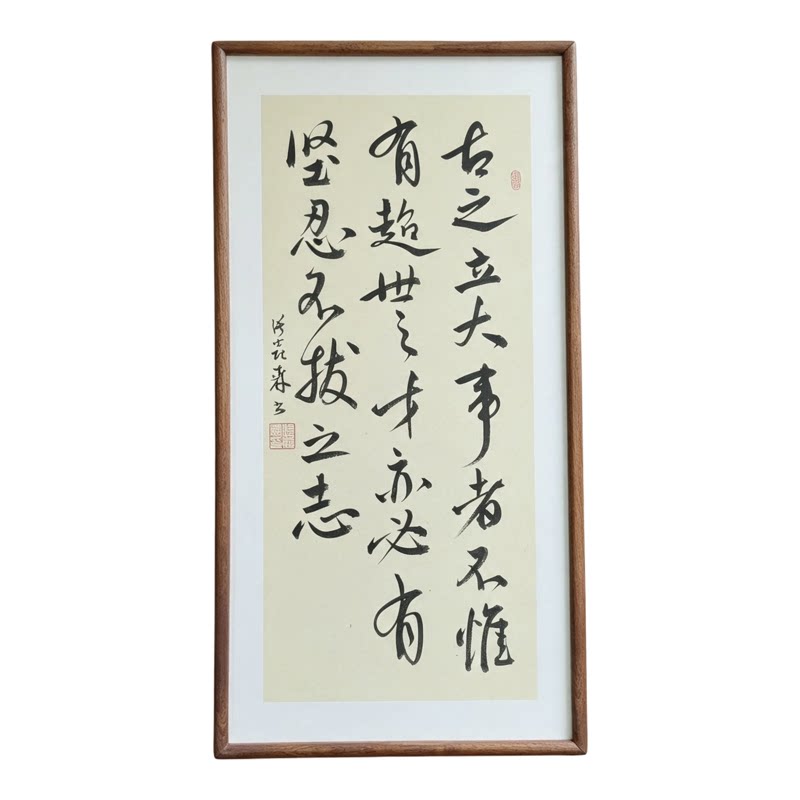 古之立大事者不惟
有超世之才亦必有
坚忍不拔之志